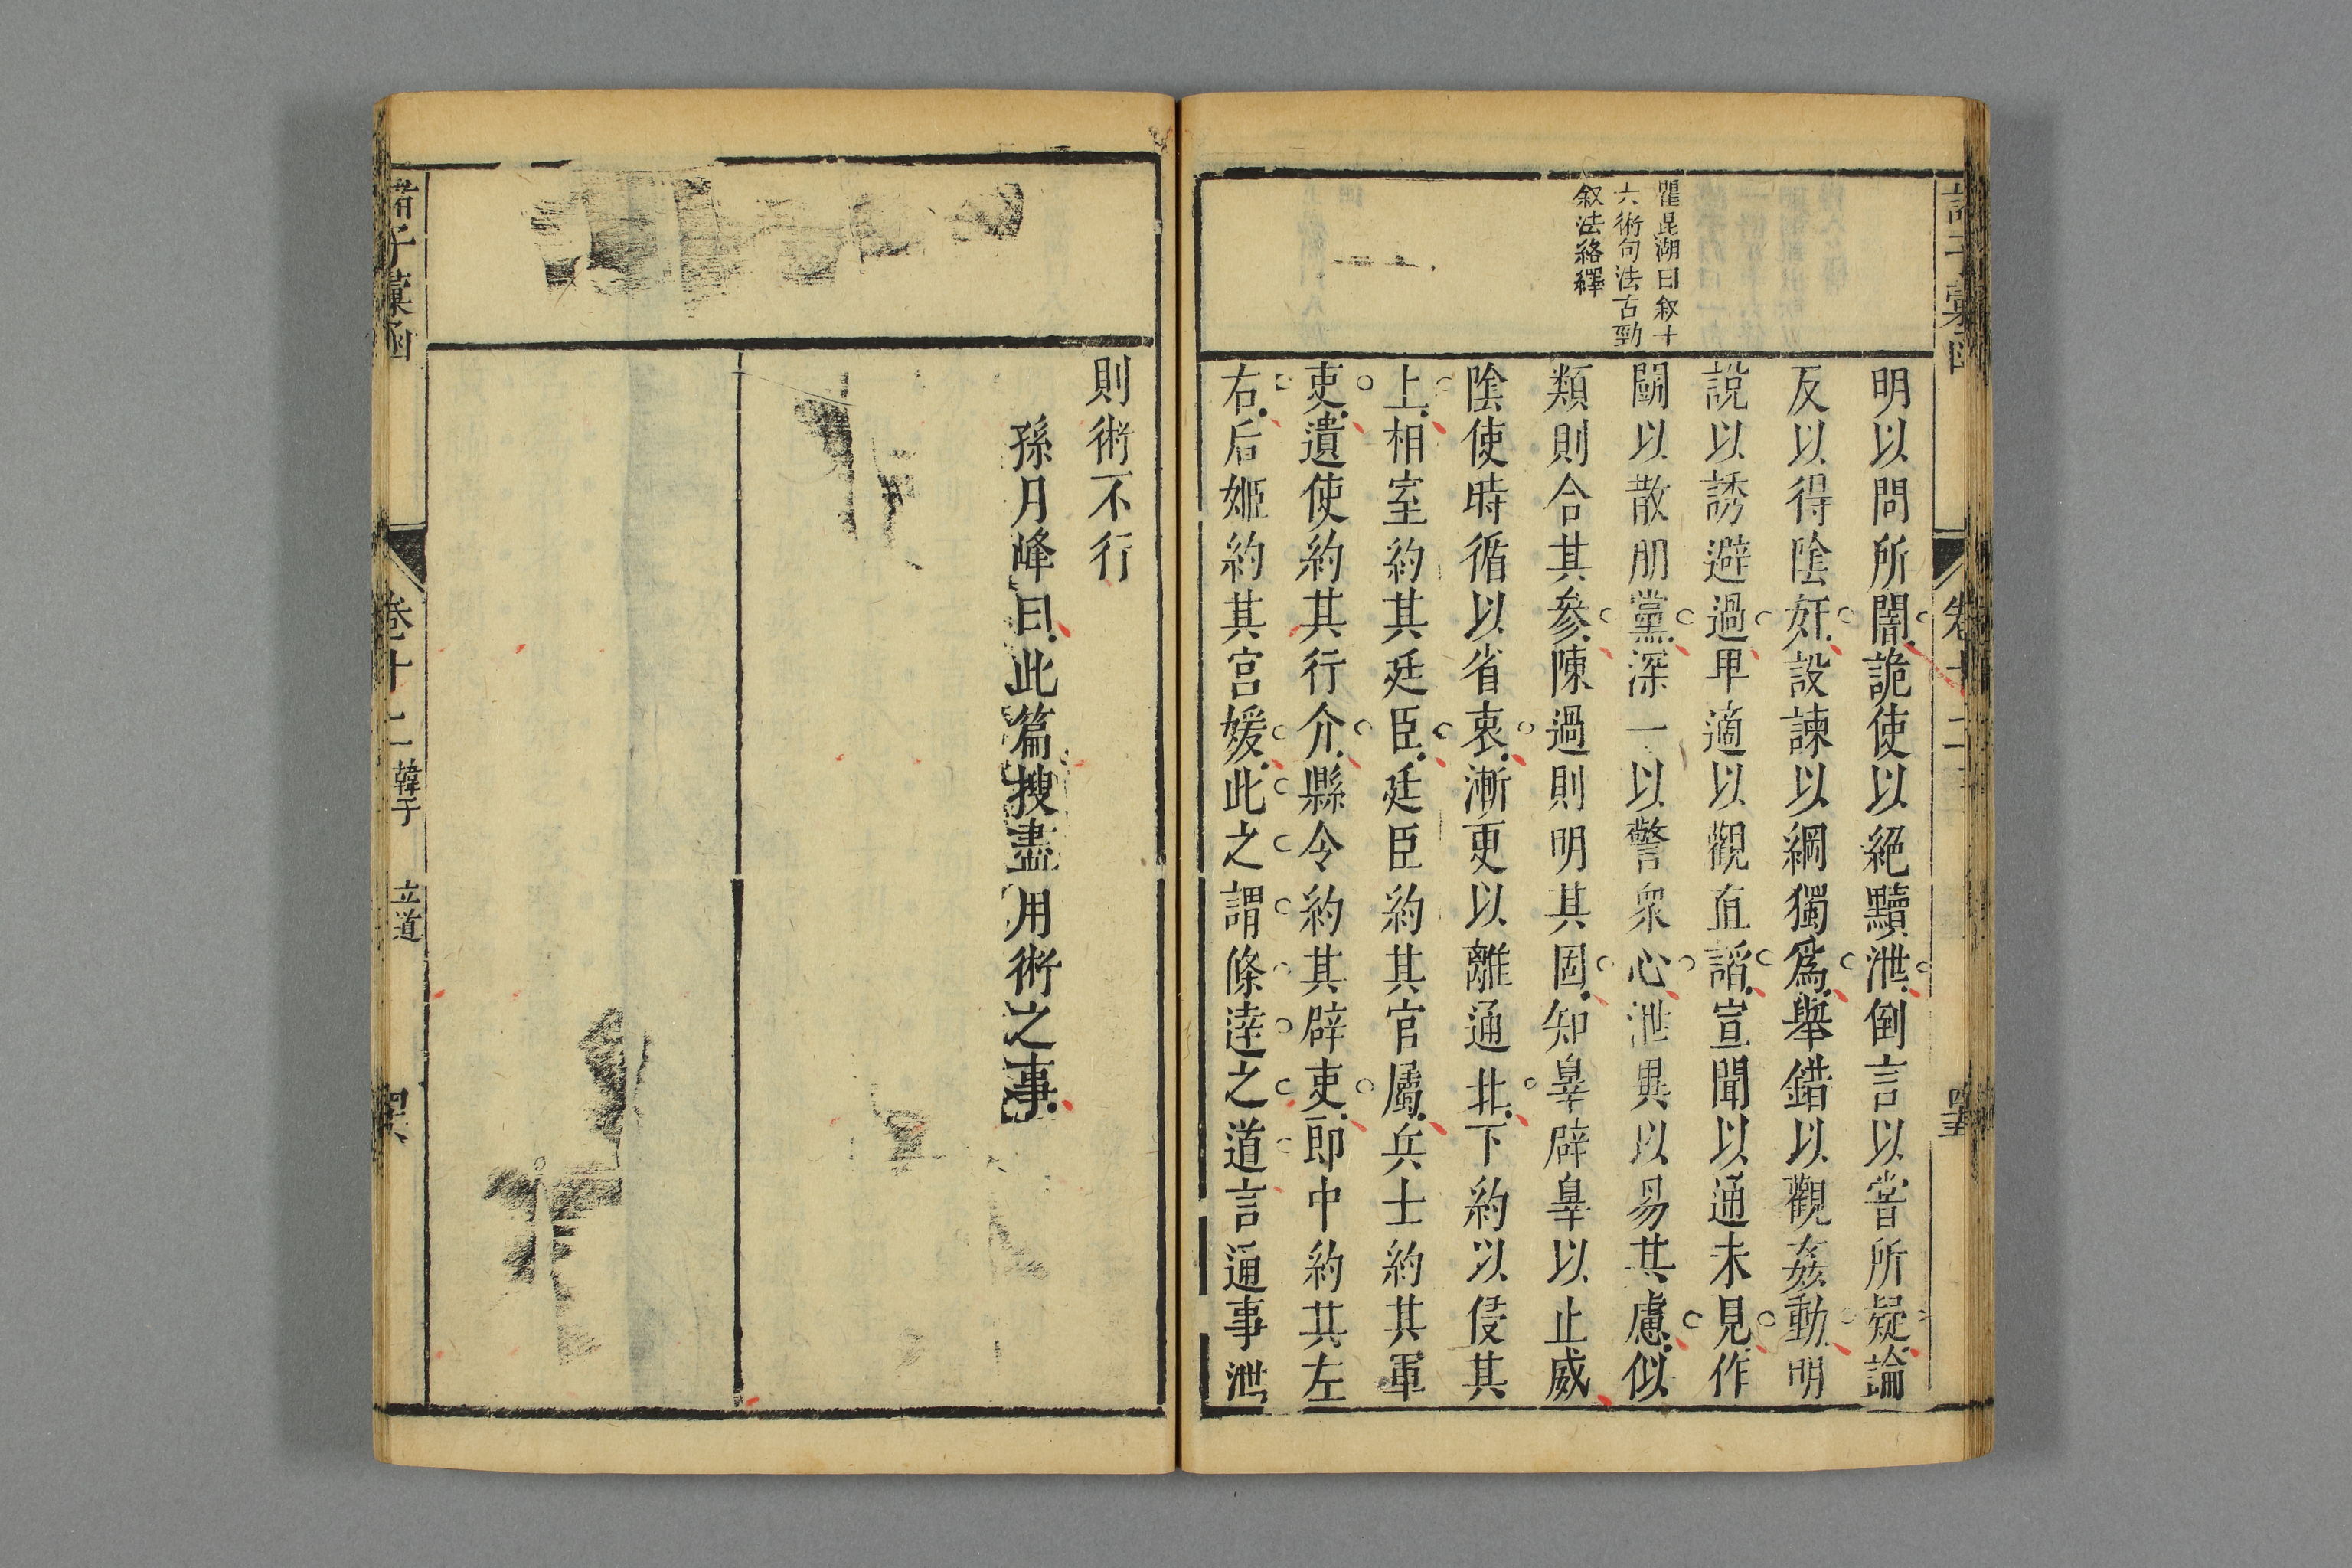 瞿昆湖曰叙十
六術句法古勁
叙法絡繹
明以問所闇詭使以絕黷泄倒言以嘗所疑論
反以得陰奸設諫以綱獨爲舉錯以觀姦動明
說以誘避過𤰞適以觀直謟宣聞以通未見作
鬭以散朋黨深一以警衆心泄異以易其慮似
類則合其參陳過則明其固知辠辟辠以止威
陰使時循以省衷漸更以離通北下約以侵其
上相室約其廷臣廷臣約其官屬兵士約其軍
吏遺使約其行介縣令約其辟吏郎中約其左
右后姬約其宮媛此之謂條達之道言通事泄
則術不行
孫月峰曰此篇搜盡用術之事
諸子彙函
卷十二
韓子
立道